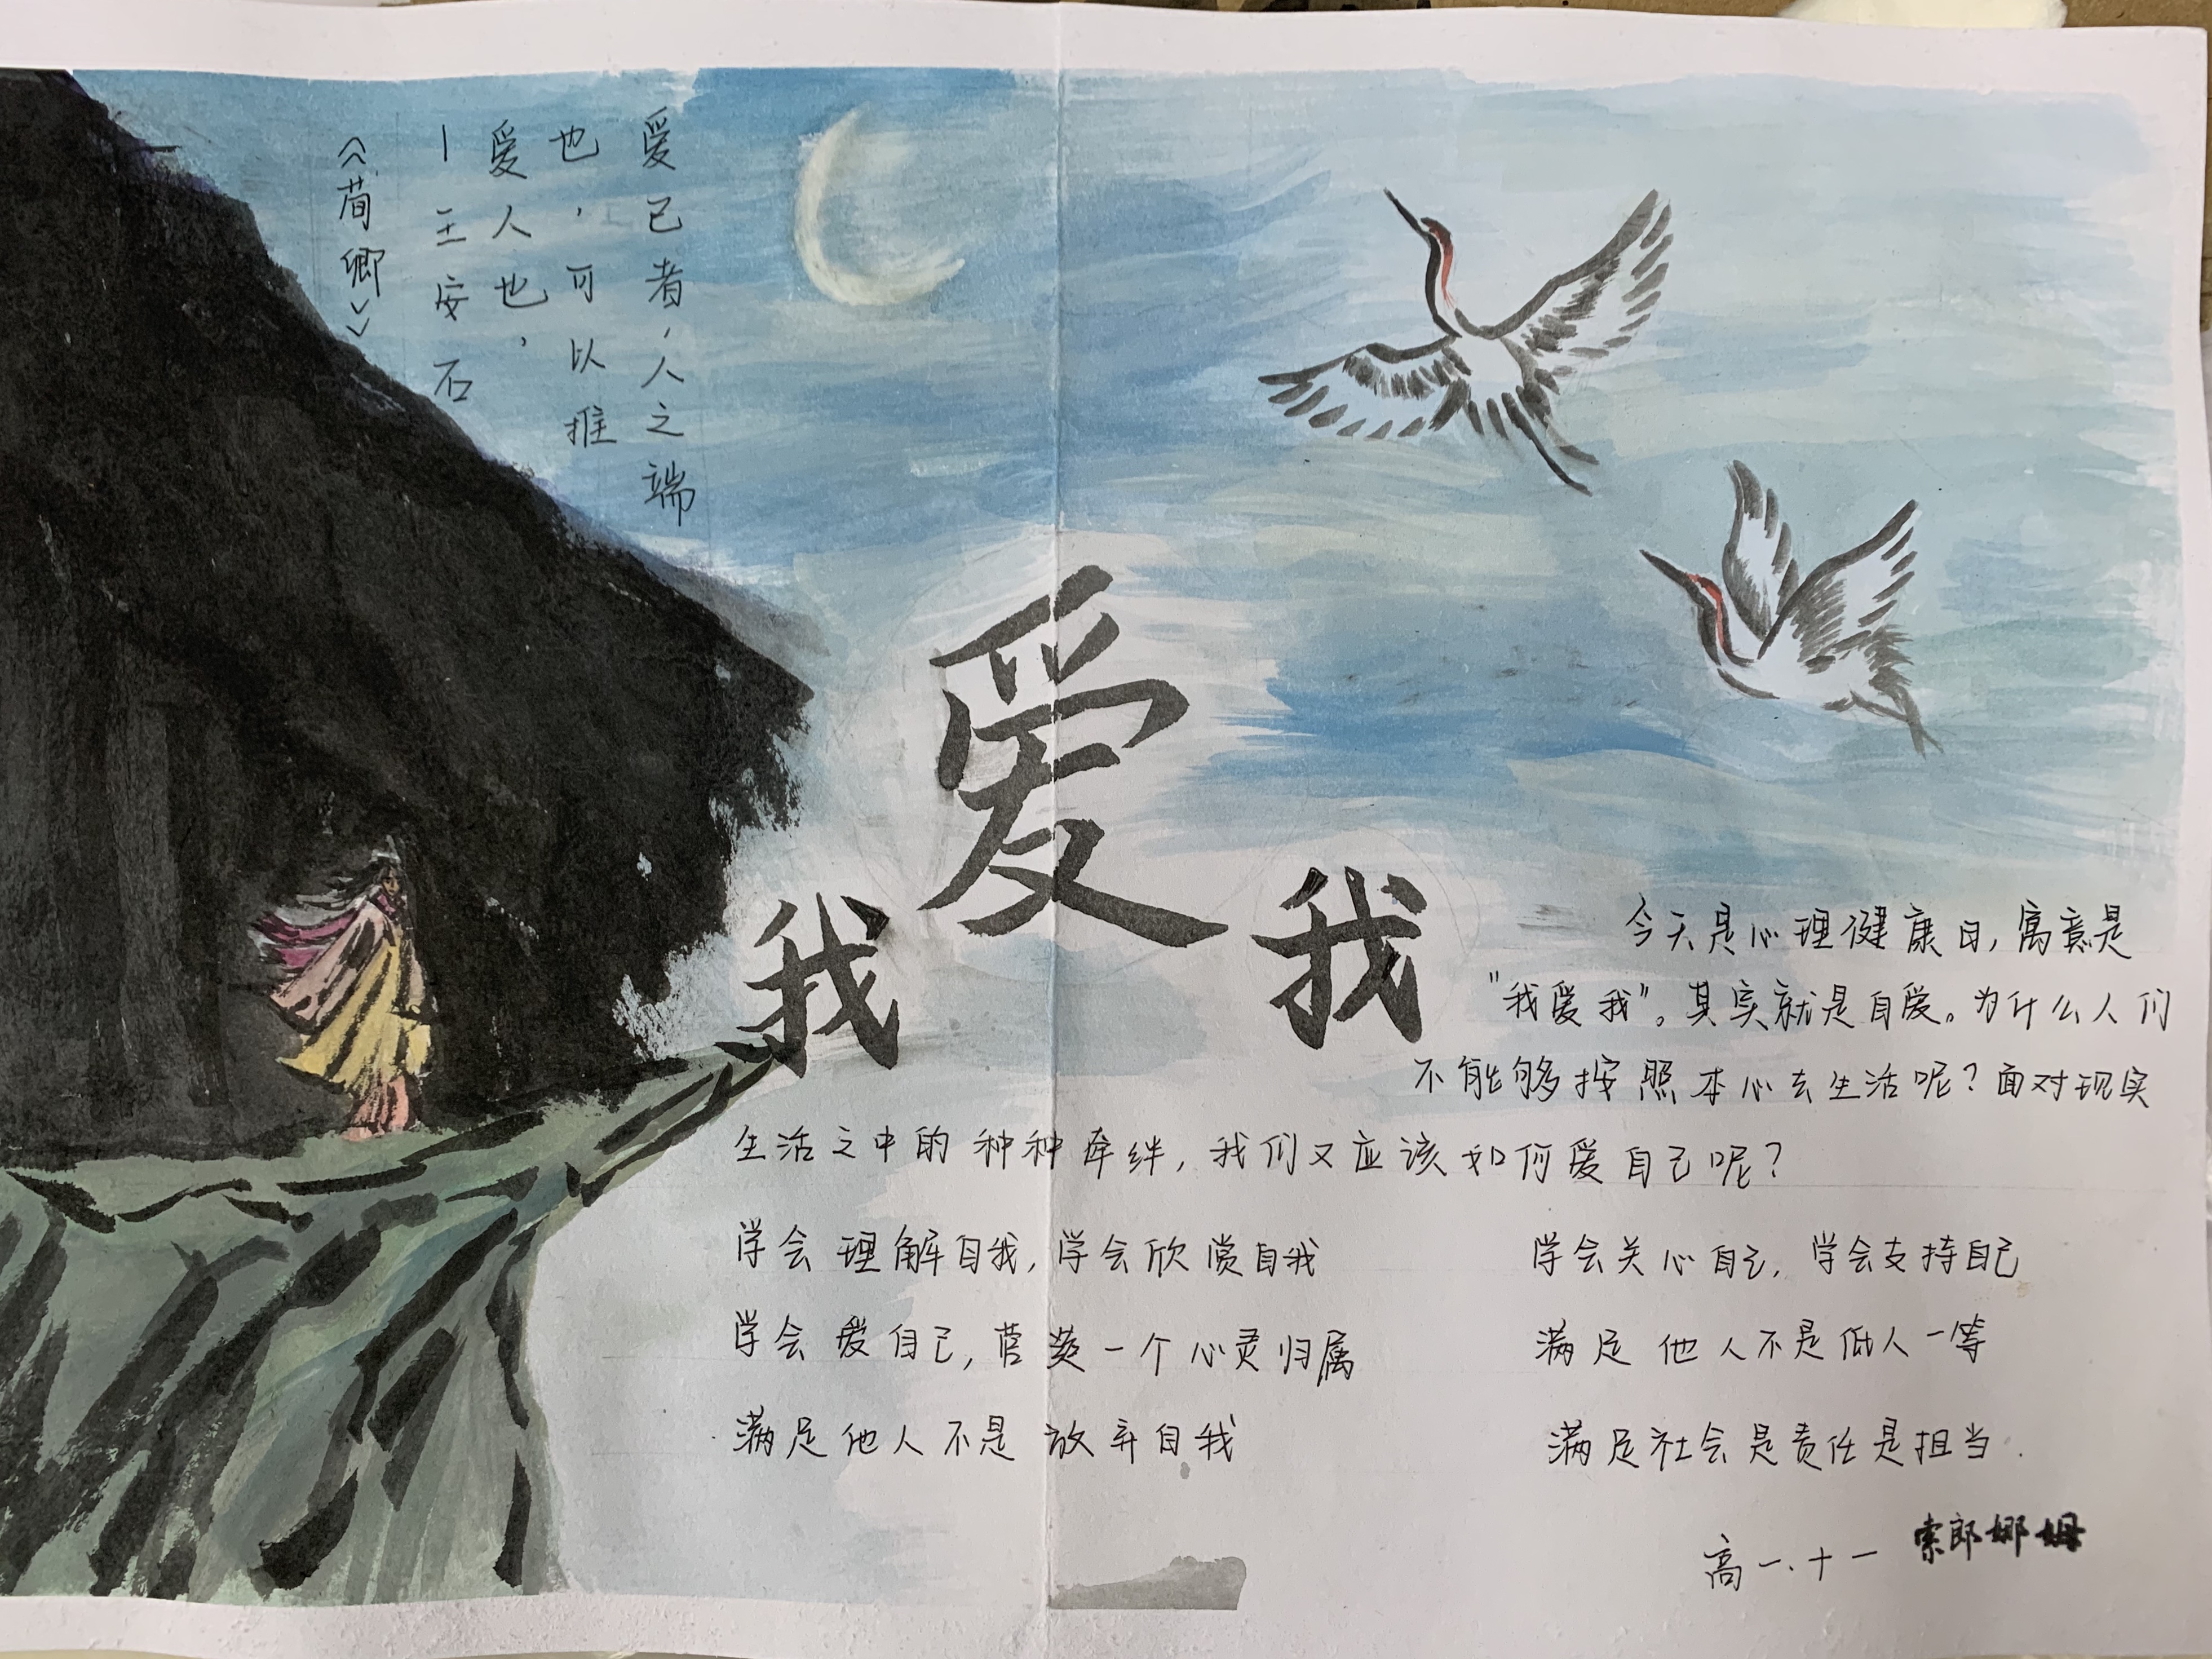 爱己者,人之端
也,可以推
爱人也,
—王安石
《荀卿》
我爱我
今天是心理健康日,寓意是
"我爱我"。其实就是自爱。为什么人们
不能够按照本心去生活呢?面对现实
生活之中的种种牵绊,我们又应该如何爱自己呢?
学会理解自我,学会欣赏自我
学会爱自己,营造一个心灵归属
满足他人不是放弃自我
学会关心自己,学会支持自己
满足他人不是低人一等
满足社会是责任是担当.
高一.十一 索郎娜姆